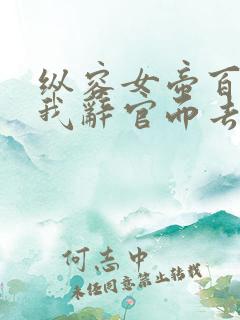 纵容女帝百
我辞官而去
何志中
未经同意禁止转载